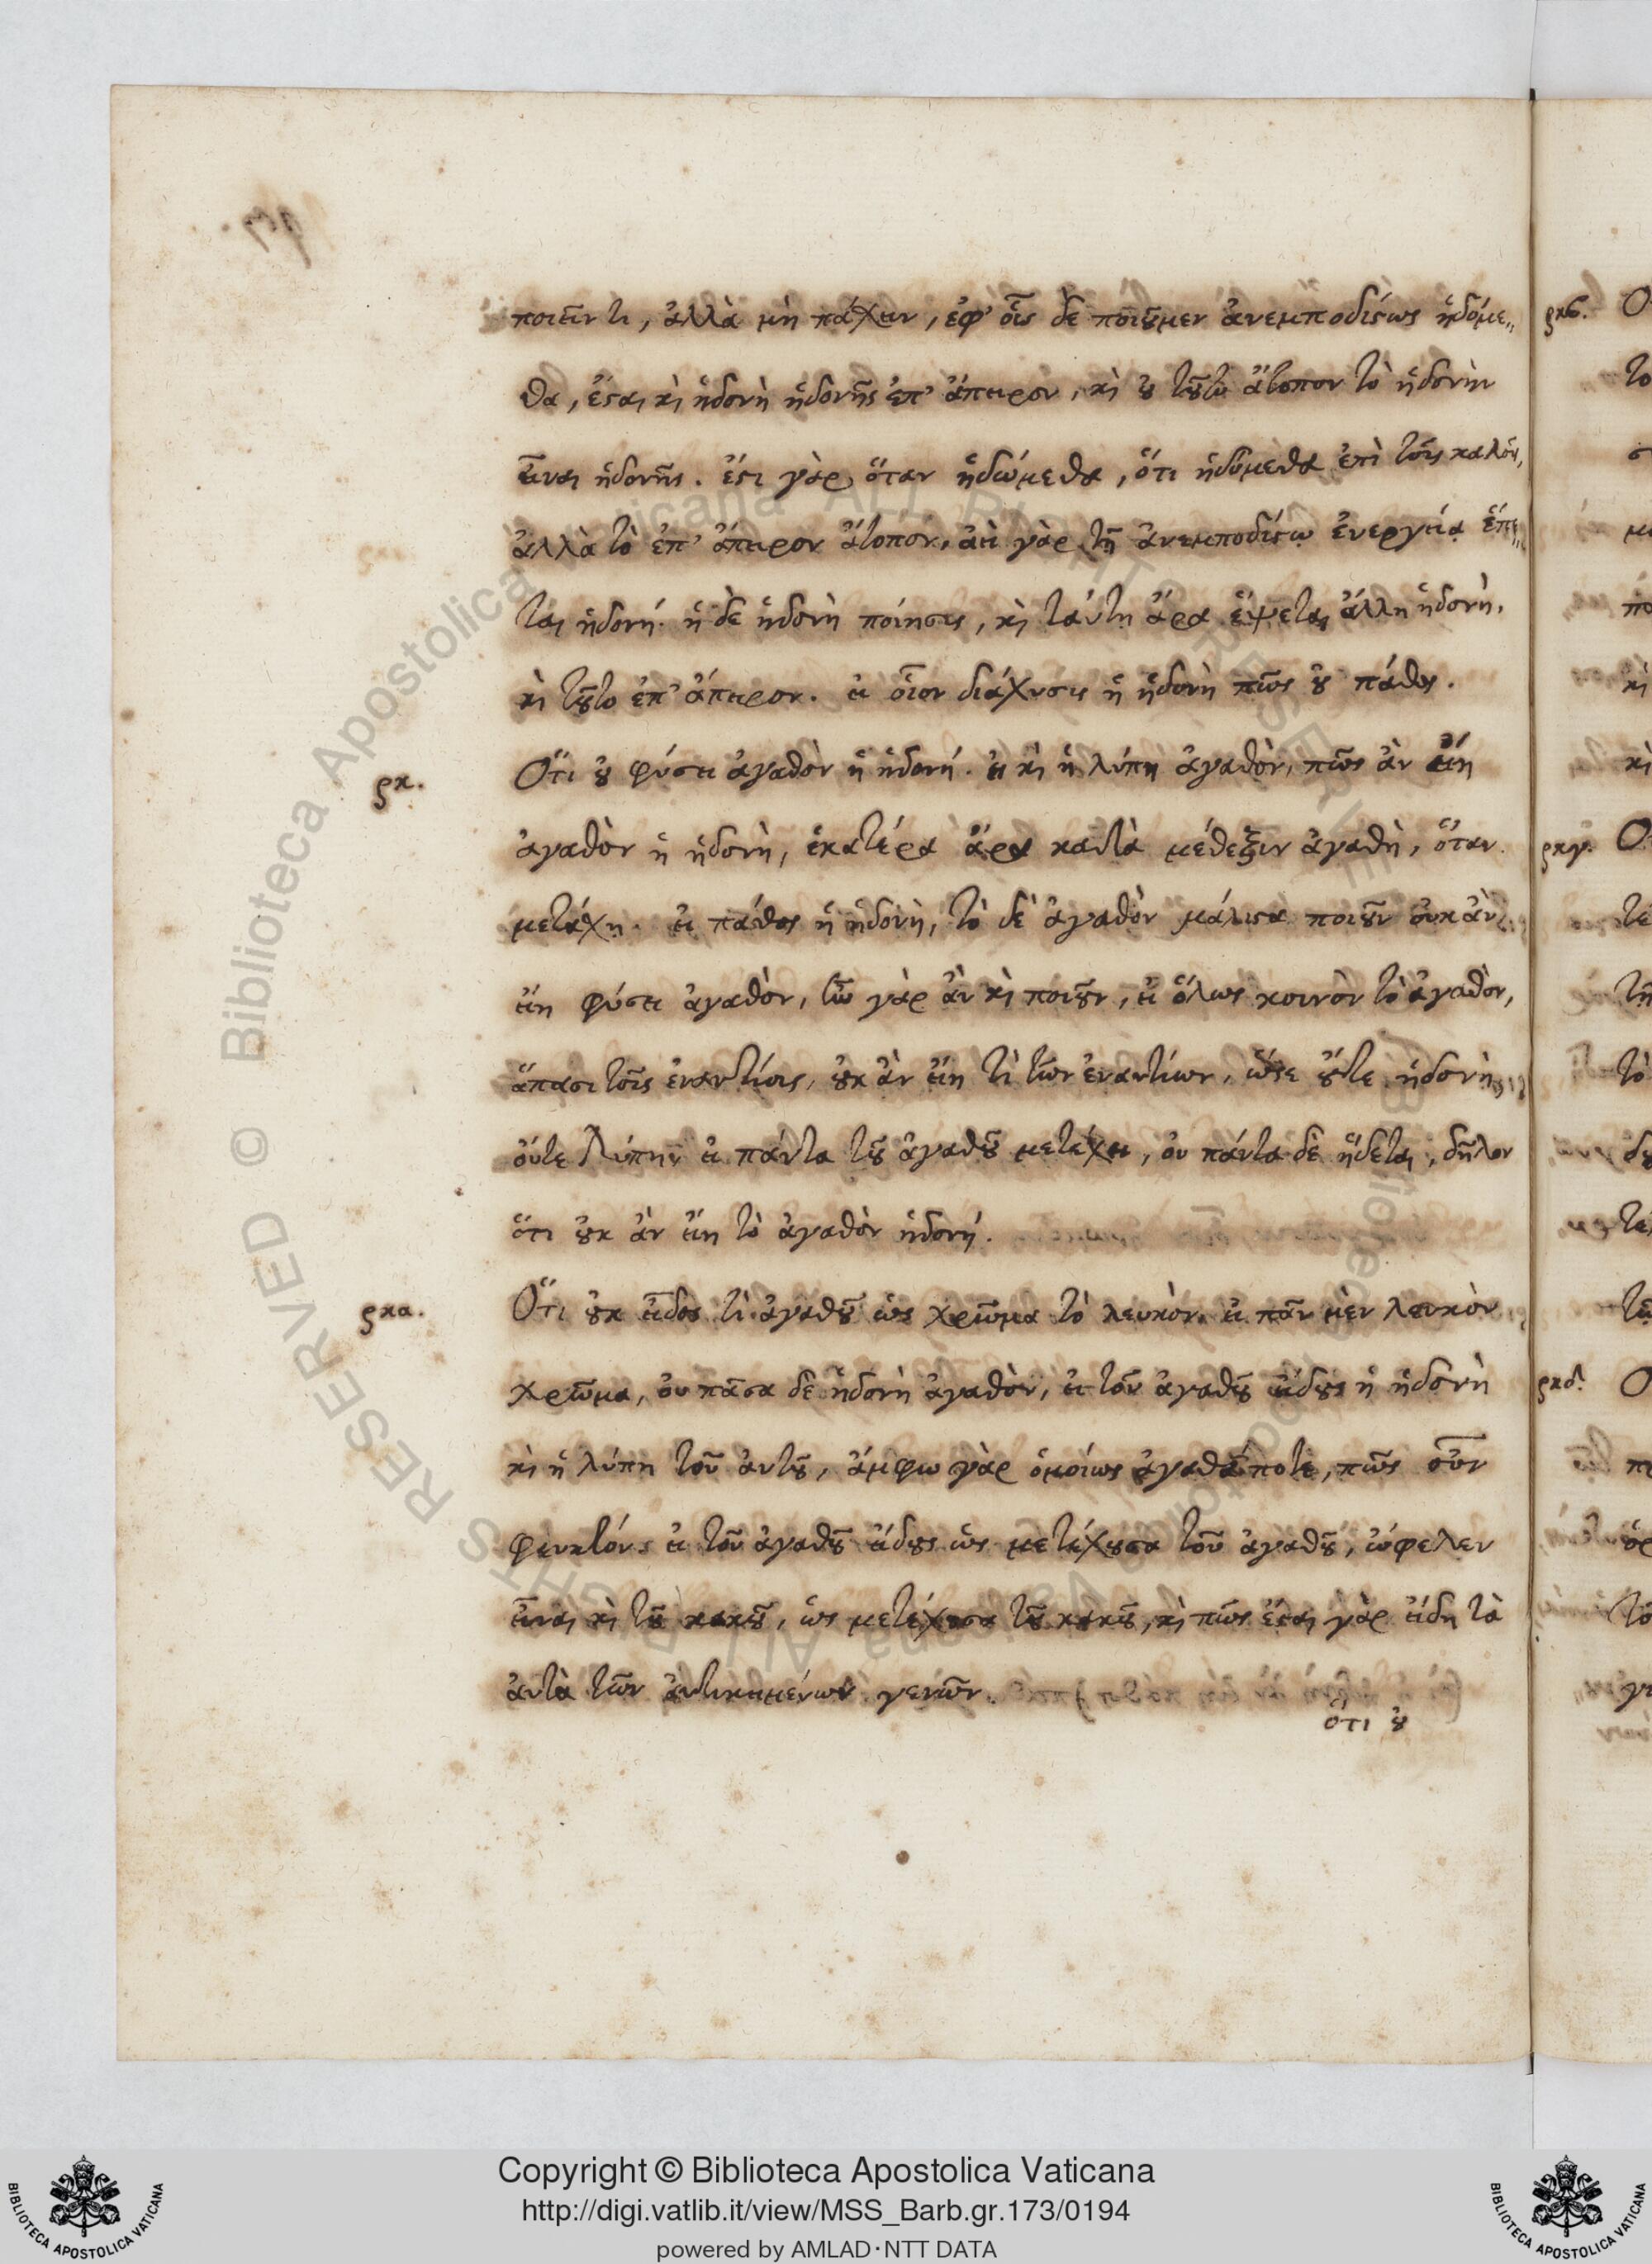 ποιεῖν τι, ἀλλὰ μὴ πάχειν, ἐφ' οἷς δὲ ποιοῦμεν ἀνεμποδίστως ἡδόμε„
θα, ἔσαι καὶ ἡδονὴ ἡδονῆς ἐπ' ἄπειρον, καὶ οὐ τοῦτο ἄτοπον τὸ ἡδονὴν
εἶναι ἡδονῆς. ἔστι γὰρ ὅταν ἡδώμεθα, ὅτι ἡδόμεθα ἐπὶ τοῖς
ἀλλὰ τὸ ἐπ' ἄπειρον ἄτοπον, ἀεὶ γὰρ τῇ ἀνεμποδίστῳ ἐνεργείᾳ ἕπε„
ται ἡδονή. ἡ δὲ ἡδονὴ ποίησις, καὶ ταύτῃ ἄρα ἕψεται ἄλλη ἡδονή,
καὶ τοῦτο ἐπ' ἄπειρον. εἰ οἷον διάχυσις ἡ ἡδονὴ πῶς οὐ πάθος.
ρκ.
Ὅτι οὐ φύσει ἀγαθὸν ἡ ἡδονή. εἰ καὶ ἡ λύπη ἀγαθὸν, πῶς ἂν εἴη
ἀγαθὸν ἡ ἡδονὴ, ἑκατέρα ἄρα κατὰ μέθεξιν ἀγαθὴ, ὅταν
μετέχῃ. εἰ πάθος ἡ ἡδονὴ, τὸ δὲ ἀγαθὸν μάλιστα ποιοῦν οὐκ ἂν
εἴη φύσει ἀγαθὸν, ἦν γὰρ ἂν καὶ ποιοῦν, εἰ ὅλως κοινὸν τὸ ἀγαθὸν,
ἅπασι τοῖς ἐναντίοις, οὐκ ἂν εἴη τὶ τῶν ἐναντίων, ὥστε οὔτε ἡδονὴ,
οὔτε λύπη εἰ πάντα τοῦ ἀγαθοῦ μετέχει, οὐ πάντα δὲ ἥδεται, δῆλον
ὅτι οὐκ ἂν εἴη τὸ ἀγαθὸν ἡδονή.
ρκα.
Ὅτι οὐκ εἶδος τὶ ἀγαθοῦ ὡς χρῶμα τὸ λευκὸν. εἰ πᾶν μὲν λευκὸν
χρῶμα, οὐ πᾶσα δὲ ἡδονὴ ἀγαθὸν, εἰ τοῦ ἀγαθοῦ εἶδος ἡ ἡδονὴ
καὶ ἡ λύπη τοῦ αὐτοῦ, ἄμφω γὰρ ὁμοίως ἀγαθά ποτε, πῶς οὖν
φευκτόν; εἰ τοῦ ἀγαθοῦ εἶδος ὡς μετέχουσα τοῦ ἀγαθοῦ, ὤφελεν
εἶναι καὶ τοῦ κακοῦ, ὡς μετέχουσα τοῦ κακοῦ, καὶ πῶς ἔσται γὰρ εἴδη τὰ
αὐτὰ τῶν ἀντικειμένων γενῶν.
ὅτι οὐ
ρκβ.
ρκγ.
ρκδ.
© Biblioteca Apostolica Vaticana ALL RIGHTS RESERVED
Copyright © Biblioteca Apostolica Vaticana
http://digi.vatlib.it/view/MSS_Barb.gr.173/0194
powered by AMLAD·NTT DATA
BIBLIOTECA APOSTOLICA VATICANA
BIBLIOTECA APOSTOLICA VATICANA